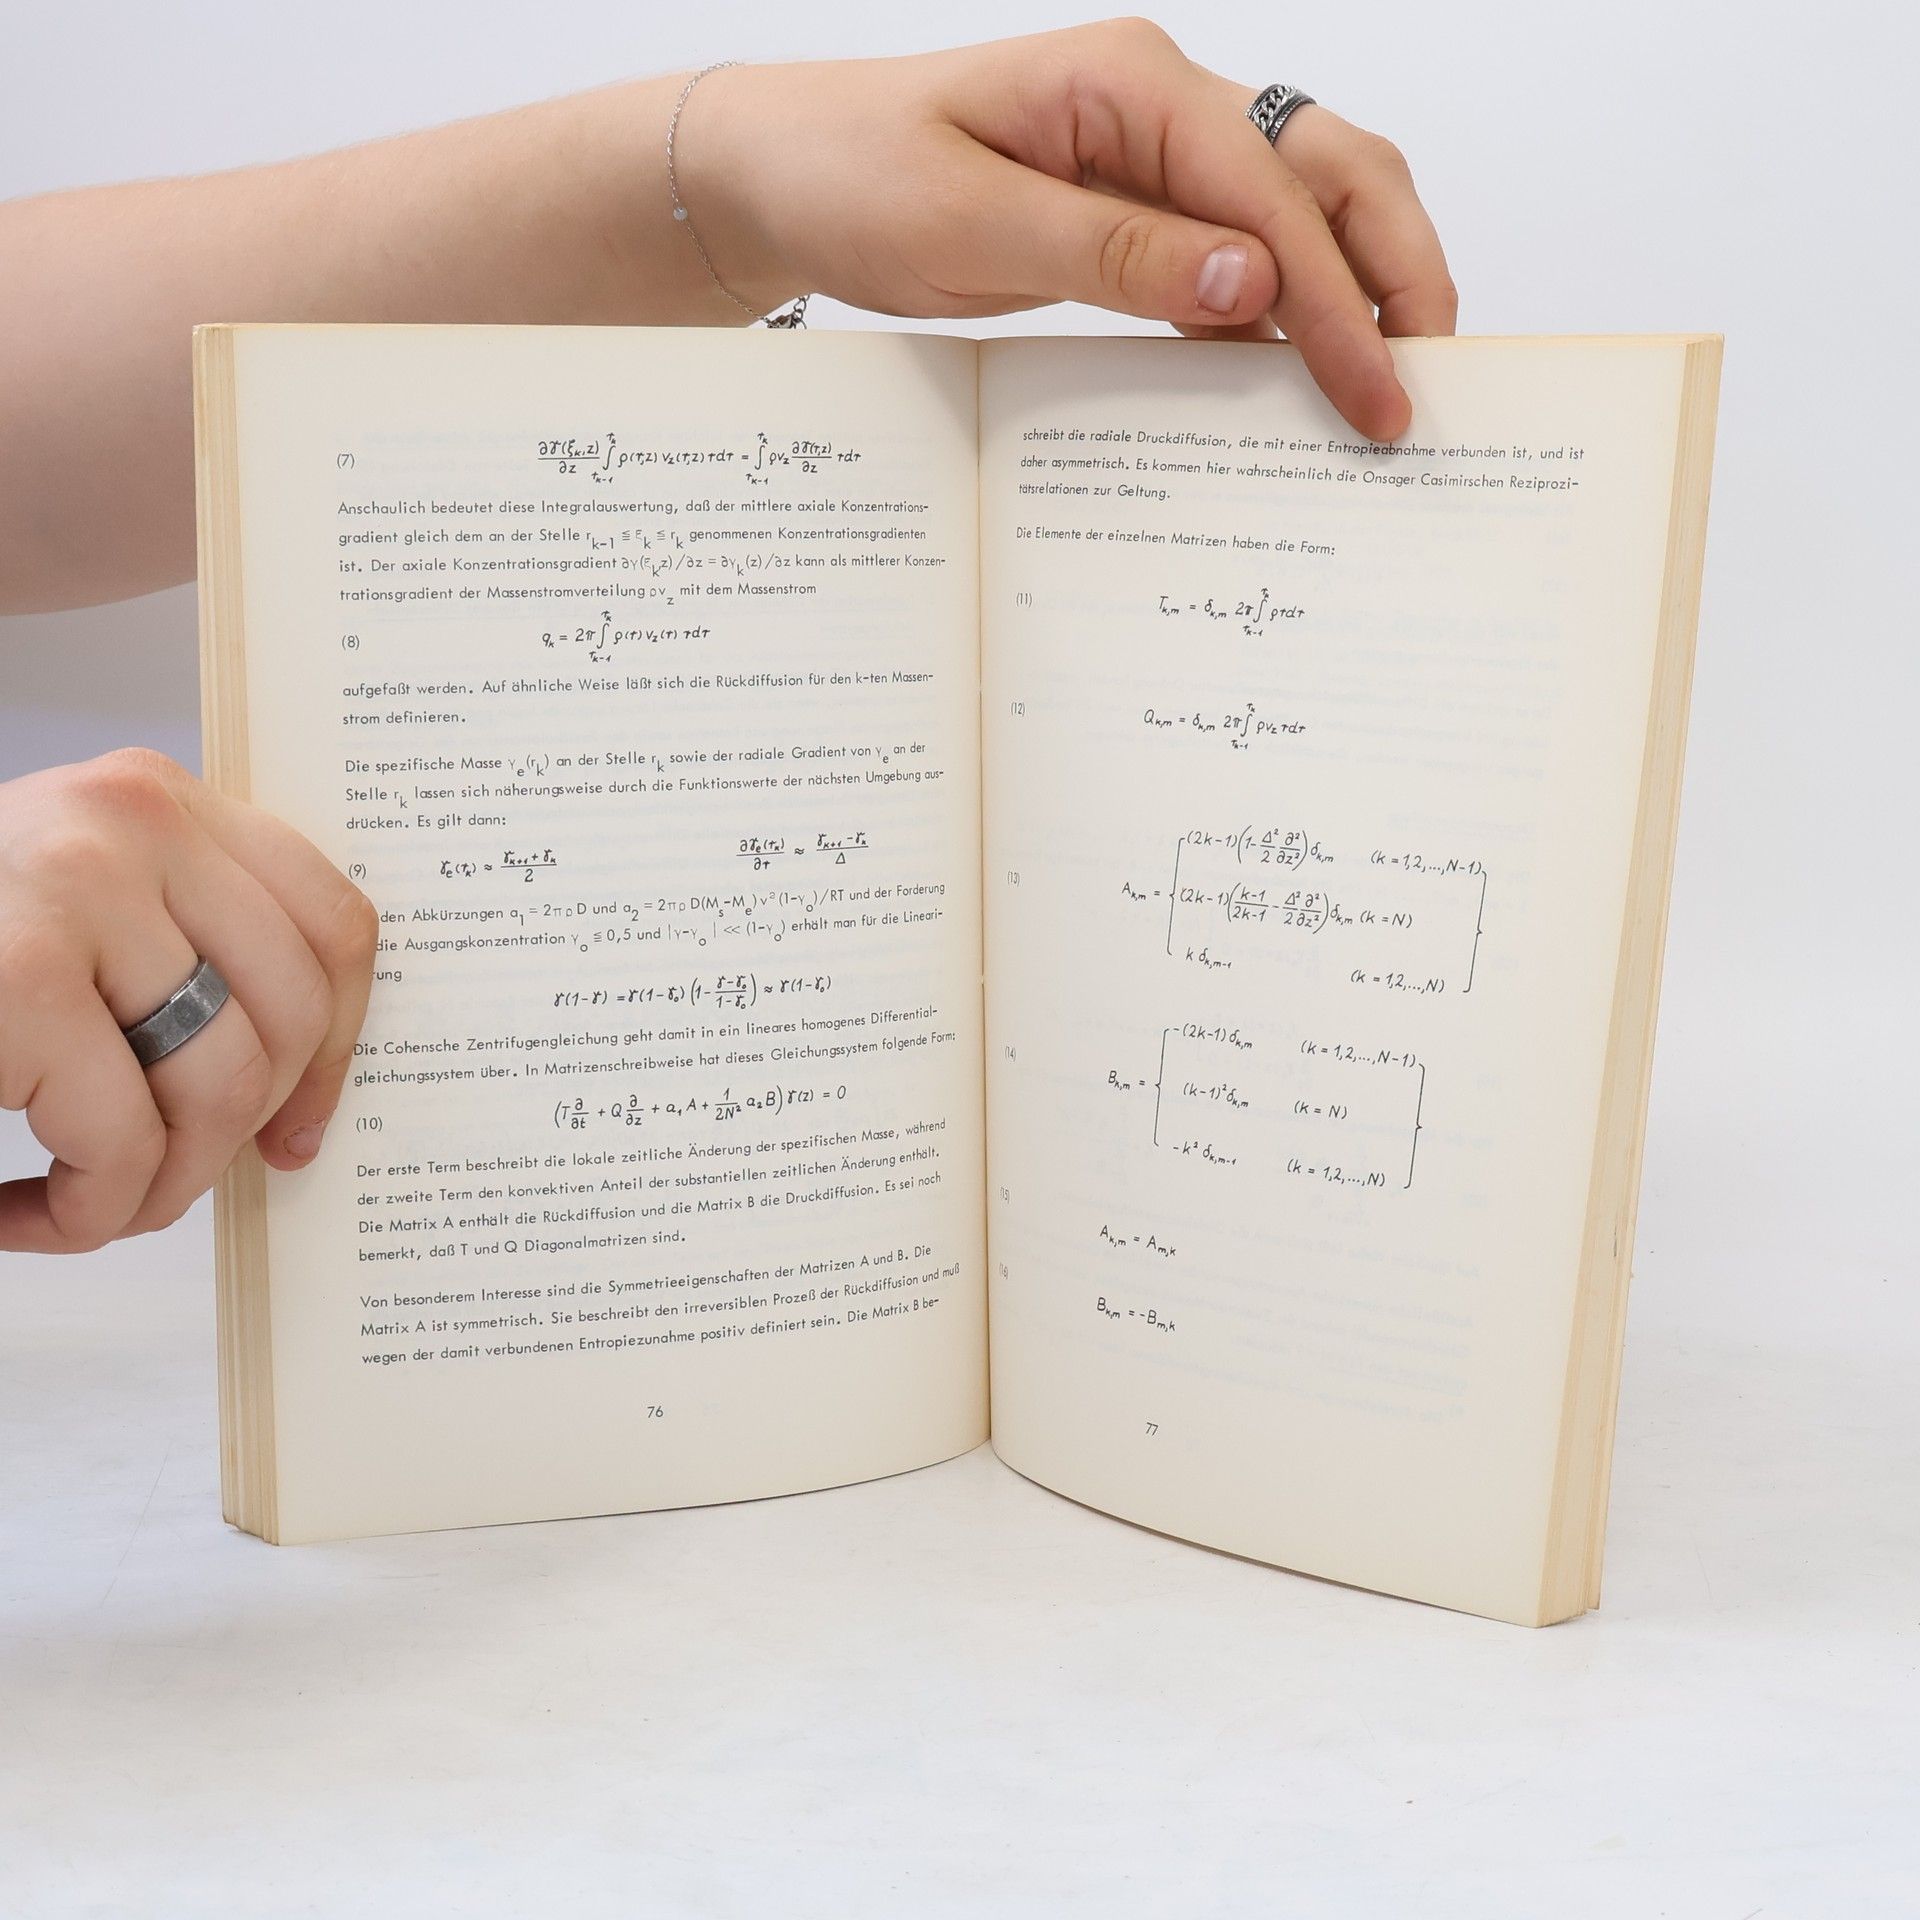 (7) ∂γ(ξₖ,z)/∂z ∫_{rₖ₋₁}^{rₖ} ρ(r,z) v_z(r,z) r dr = ∫_{rₖ₋₁}^{rₖ} ρv_z ∂γ(r,z)/∂z r dr
Anschaulich bedeutet diese Integralauswertung, daß der mittlere axiale Konzentrations-
gradient gleich dem an der Stelle r_{k-1} ≦ ξ_k ≦ r_k genommenen Konzentrationsgradienten
ist. Der axiale Konzentrationsgradient ∂γ(ξ_k,z)/∂z = ∂γ_k(z)/∂z kann als mittlerer Konzen-
trationsgradient der Massenstromverteilung ρv_z mit dem Massenstrom
(8) q_k = 2π ∫_{r_{k-1}}^{r_k} ρ(r) v_z(r) r dr
aufgefaßt werden. Auf ähnliche Weise läßt sich die Rückdiffusion für den k-ten Massen-
strom definieren.
Die spezifische Masse γ_e(r_k) an der Stelle r_k sowie der radiale Gradient von γ_e an der
Stelle r_k lassen sich näherungsweise durch die Funktionswerte der nächsten Umgebung aus-
drücken. Es gilt dann:
(9) γ_e(r_k) ≈ (γ_{k+1} + γ_k)/2 ∂γ_e(r_k)/∂r ≈ (γ_{k+1} - γ_k)/Δ
den Abkürzungen a_1 = 2πρD und a_2 = 2πρD(M_s-M_e)v²(1-γ_o)/RT und der Forderung
die Ausgangskonzentration γ_o ≦ 0,5 und |γ-γ_o| << (1-γ_o) erhält man für die Lineari-
rung
γ(1-γ) = γ(1-γ_o) (1 - (γ-γ_o)/(1-γ_o)) ≈ γ(1-γ_o)
Die Cohensche Zentrifugengleichung geht damit in ein lineares homogenes Differential-
gleichungssystem über. In Matrizenschreibweise hat dieses Gleichungssystem folgende Form:
(10) (T ∂/∂t + Q ∂/∂z + a_1 A + 1/(2N²) a_2 B) γ(z) = 0
Der erste Term beschreibt die lokale zeitliche Änderung der spezifischen Masse, während
der zweite Term den konvektiven Anteil der substantiellen zeitlichen Änderung enthält.
Die Matrix A enthält die Rückdiffusion und die Matrix B die Druckdiffusion. Es sei noch
bemerkt, daß T und Q Diagonalmatrizen sind.
Von besonderem Interesse sind die Symmetrieeigenschaften der Matrizen A und B. Die
Matrix A ist symmetrisch. Sie beschreibt den irreversiblen Prozeß der Rückdiffusion und muß
wegen der damit verbundenen Entropiezunahme positiv definiert sein. Die Matrix B be-
76
schreibt die radiale Druckdiffusion, die mit einer Entropieabnahme verbunden ist, und ist
daher asymmetrisch. Es kommen hier wahrscheinlich die Onsager Casimirschen Reziprozi-
tätsrelationen zur Geltung.
Die Elemente der einzelnen Matrizen haben die Form:
(11) T_{k,m} = δ_{k,m} 2π ∫_{r_{k-1}}^{r_k} ρ r dr
(12) Q_{k,m} = δ_{k,m} 2π ∫_{r_{k-1}}^{r_k} ρv_z r dr
(2k-1)(1 - Δ²/2 ∂²/∂z²) δ_{k,m} (k = 1,2,...,N-1)
(13) A_{k,m} = (2k-1)((k-1)/(2k-1) - Δ²/2 ∂²/∂z²) δ_{k,m} (k = N)
k δ_{k,m-1} (k = 1,2,...,N)
-(2k-1) δ_{k,m} (k = 1,2,...,N-1)
(14) B_{k,m} = (k-1)² δ_{k,m} (k = N)
-k² δ_{k,m-1} (k = 1,2,...,N)
(15) A_{k,m} = A_{m,k}
(16) B_{k,m} = -B_{m,k}
77